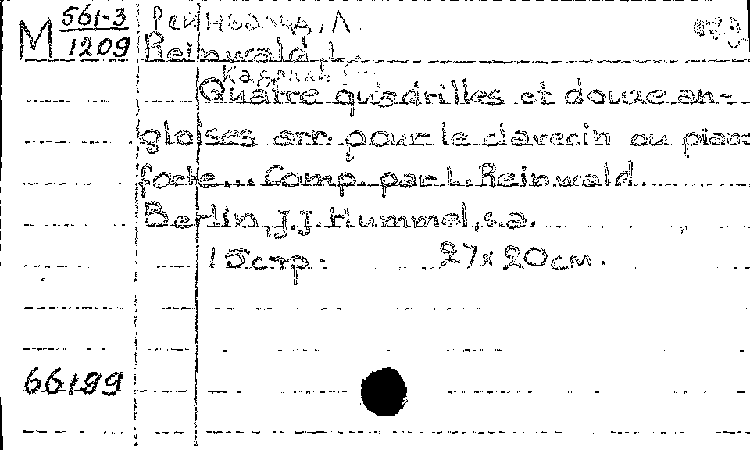 М 561-3
1209
Рейнвальд, Л.
Reinwald, L.
Quatre quadrilles et douze an-
gloises arr. pour le clavecin ou piano
forte... Comp. par L. Reinwald.
Berlin, J.J. Hummel, s.a.
15 стр. 27x20 см.
66199